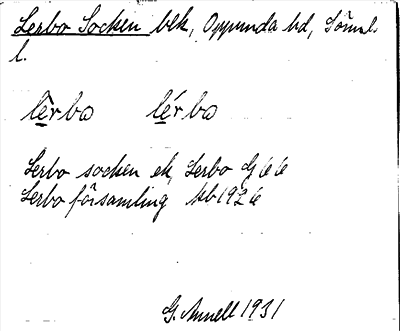 Lerbo Socken bek, Oppunda hd, Söml.
l.
lèrbo lérbo
Lerbo socken ek, Lerbo G 66
Lerbo församling kb 1926
G. Annell 1931